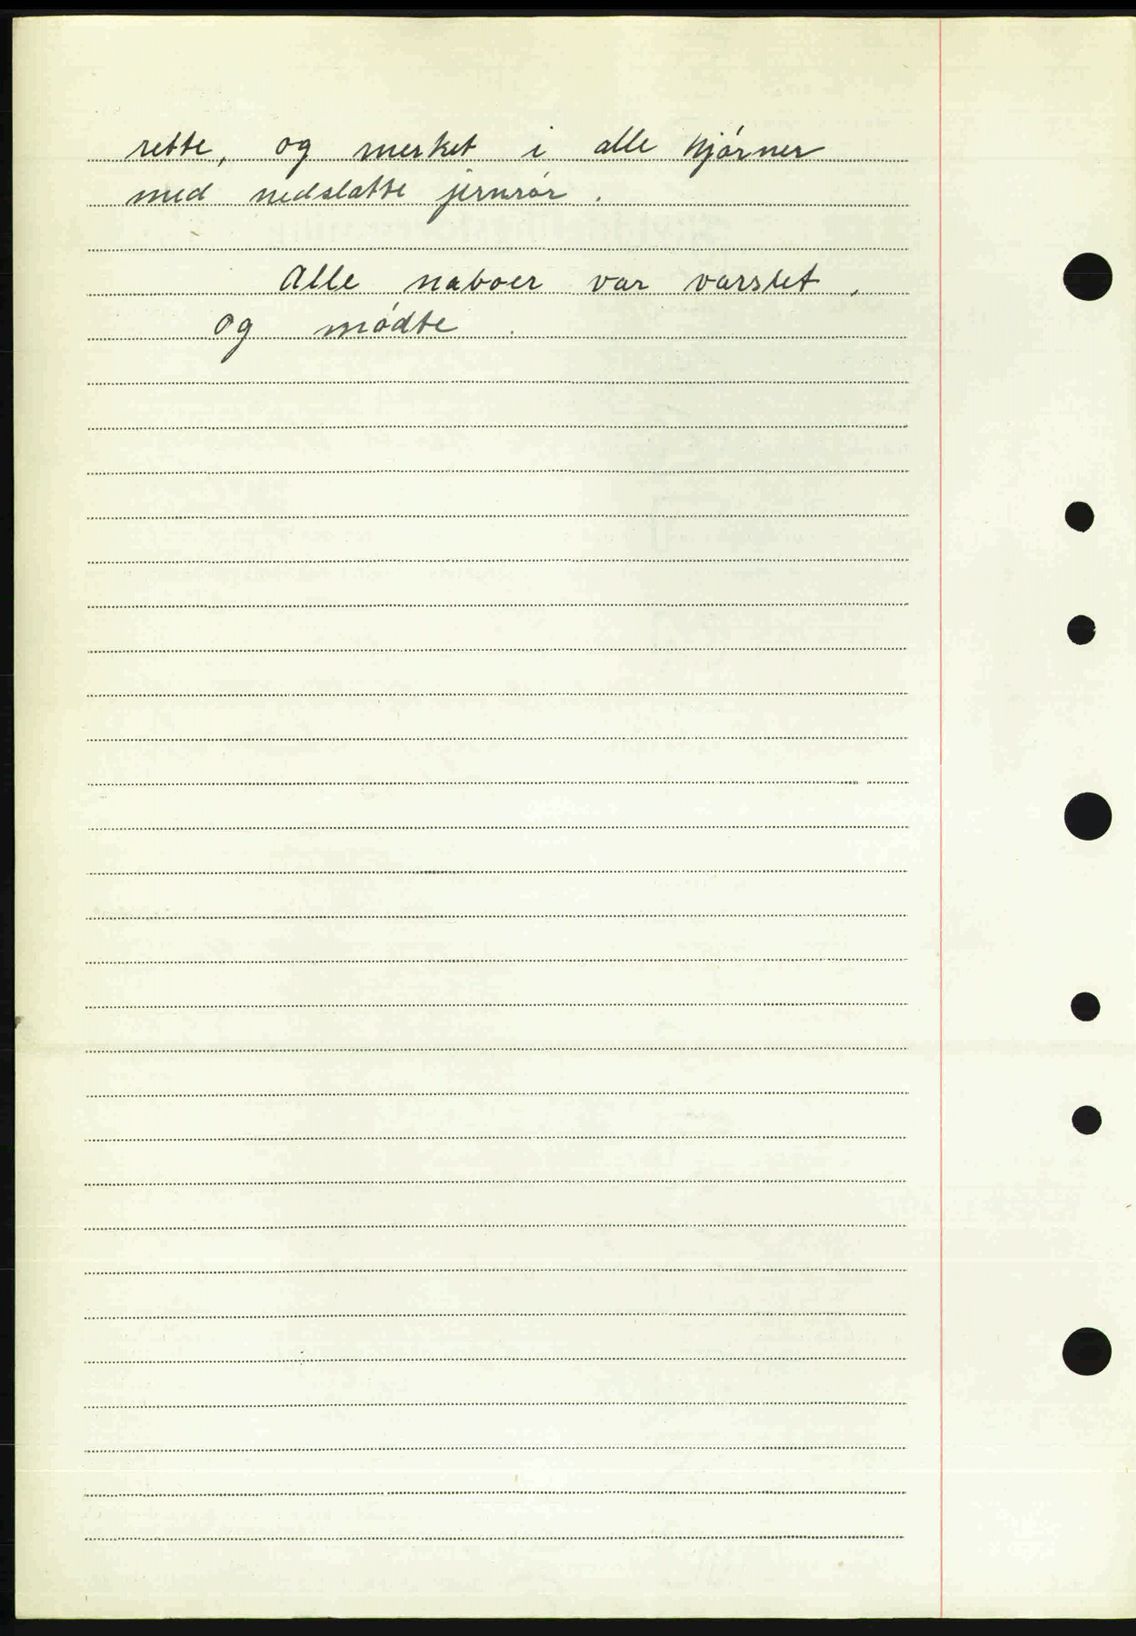 rette, og merket i alle hjørner
med nedslatte jernrør.
Alle naboer var varslet,
og mødte.